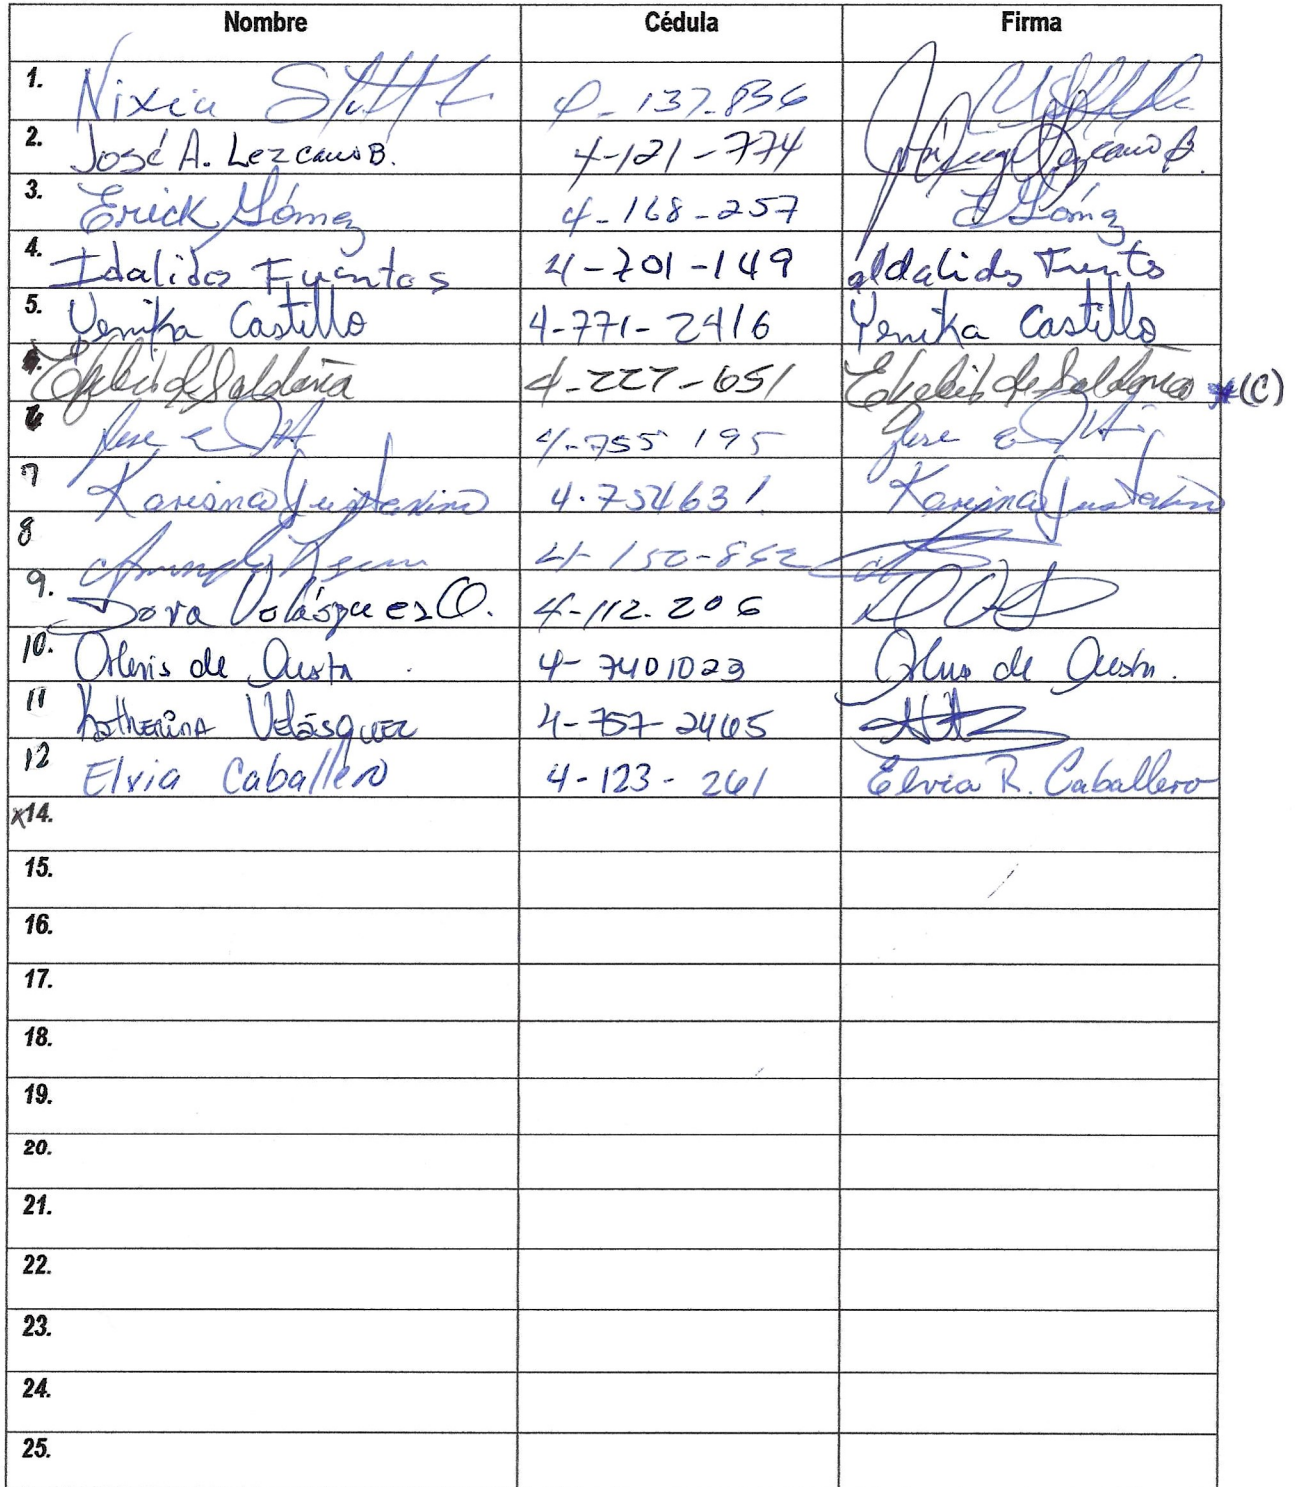 Nombre Cédula Firma
1. Nixia 4-137-836
2. José A. Lezcano B. 4-121-774
3. Erick Gómez 4-168-257 E Gómez
4. Idalides Fuentes 4-701-149 Idalides
5. Yenika Castillo 4-771-2416 Yenika Castillo
de Saldaña 4-227-651 de Saldaña *(C)
6 Jose E 4-755 195 Jose E
7 Karisma Justavino 4-754631 Karisma Justavino
8 4-150-852
9. Dora Velásquez O. 4-112-206
10. Orlenis de Austn 4-7401023 de Austn.
11 Katherina Velásquez 4-757-2465
12 Elvia Caballero 4-123-261 Elvia R. Caballero
x14.
15.
16.
17.
18.
19.
20.
21.
22.
23.
24.
25.